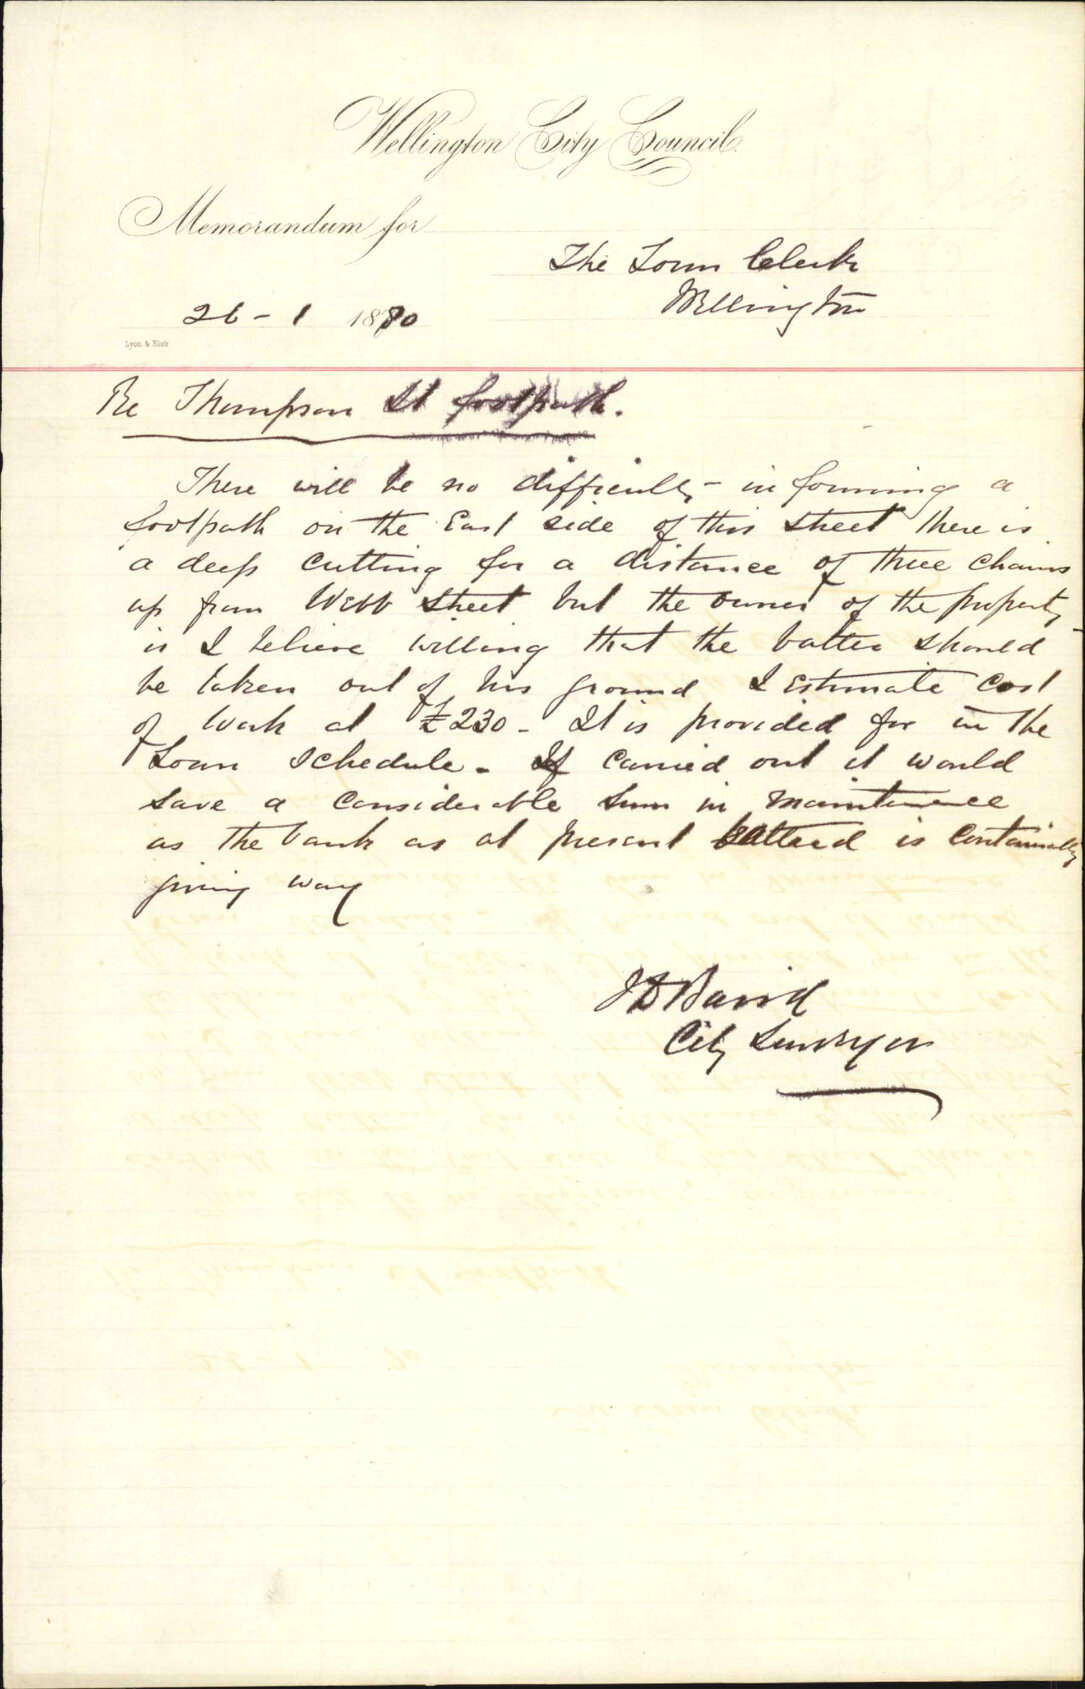 Wellington City Council.
Memorandum for
The Town Clerk
Wellington
26 - 1 1890
Lyon & Blair
Re Thompson St footpath.
There will be no difficulty - in forming a
footpath on the East side of this street there is
a deep cutting for a distance of three chains
up from Webb Street but the owner of the property
is I believe willing that the batter should
be taken out of his ground I estimate cost
of work at £230 - It is provided for in the
Loan Schedule - If carried out it would
save a considerable sum in maintenance
as the bank as at present battered is continually
giving way
J D Baird
City Surveyor